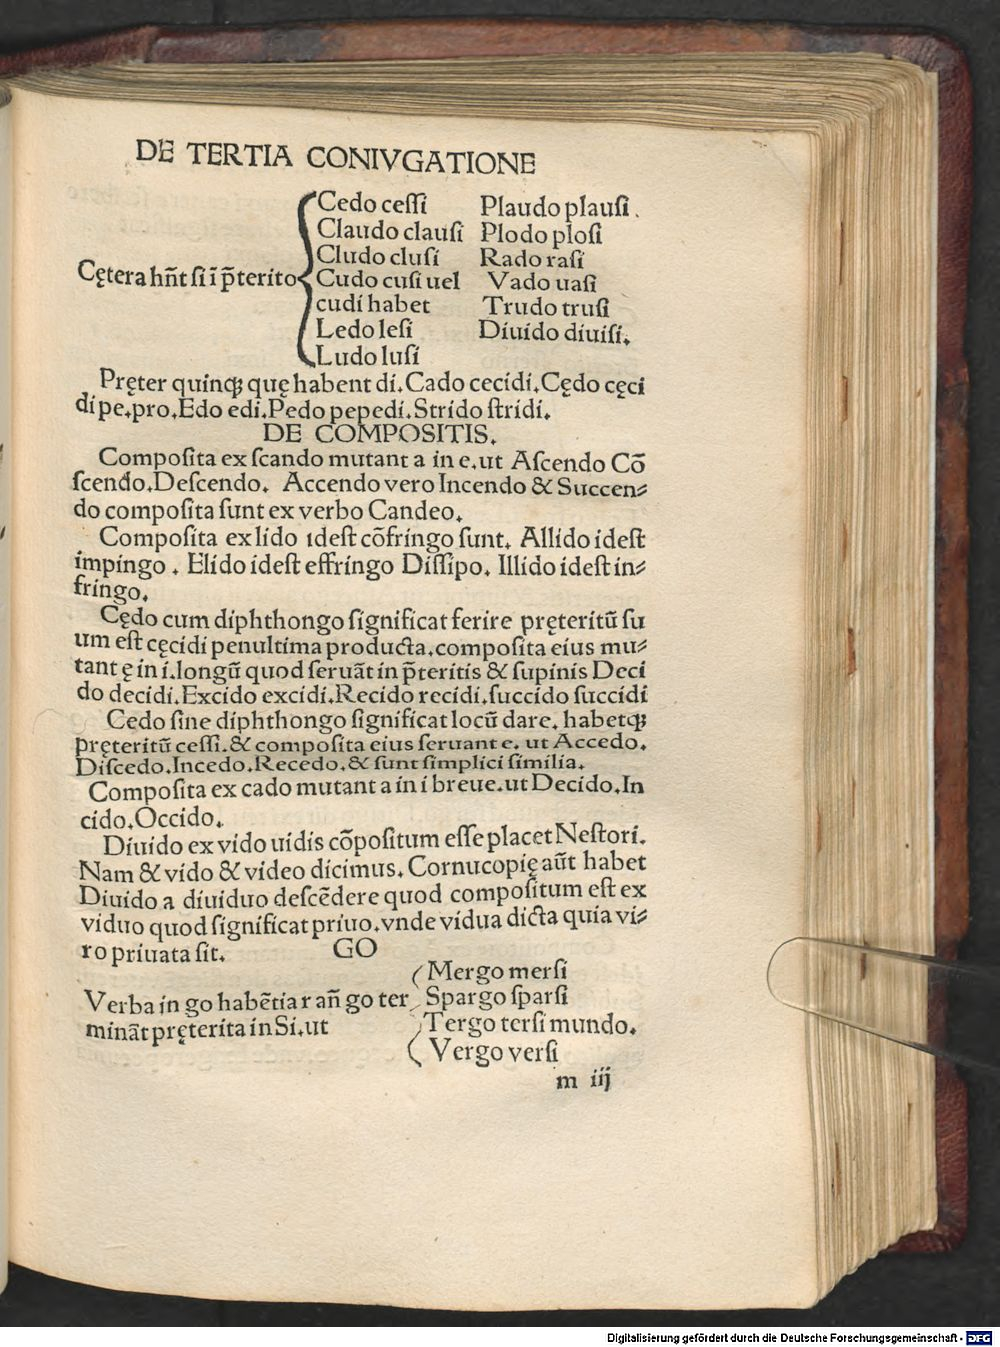 DE TERTIA CONIVGATIONE
Cedo ceſſi Plaudo plauſi.
Claudo clauſi Plodo ploſi
Cludo cluſi Rado raſi
Cętera hn̄t ſi ī p̄terito Cudo cuſi uel Vado uaſi
cudi habet Trudo truſi
Ledo leſi Diuido diuiſi.
Ludo luſi
Pręter quinqꝫ quę habent di. Cado cecidi. Cędo cęci
di pe.pro. Edo edi. Pedo pepedi. Strido ſtridi.
DE COMPOSITIS.
Compoſita ex ſcando mutant a in e.ut Aſcendo Cō
ſcendo. Deſcendo. Accendo vero Incendo & Succen⸗
do compoſita ſunt ex verbo Candeo.
Compoſita ex lido ideſt cōfringo ſunt. Allido ideſt
impingo. Elido ideſt effringo Diſſipo. Illido ideſt in⸗
fringo.
Cędo cum diphthongo ſignificat ferire pręteritū ſu
um eſt cęcidi penultima producta.compoſita eius mu⸗
tant ę in i.longū quod ſeruāt in p̄teritis & ſupinis Deci
do decidi. Excido excidi. Recido recidi. ſuccido ſuccidi
Cedo ſine diphthongo ſignificat locū dare. habetqꝫ
pręteritū ceſſi.& compoſita eius ſeruant e. ut Accedo.
Diſcedo. Incedo. Recedo. & ſunt ſimplici ſimilia.
Compoſita ex cado mutant a in i breue.ut Decido. In
cido. Occido.
Diuido ex vido uidis cōpoſitum eſſe placet Neſtori.
Nam & vido & video dicimus. Cornucopię aūt habet
Diuido a diuiduo deſcēdere quod compoſitum eſt ex
viduo quod ſignificat priuo.vnde vidua dicta quia vi⸗
ro priuata ſit. GO
Mergo merſi
Verba in go habētia r an̄ go ter Spargo ſparſi
mināt pręterita in Si.ut Tergo terſi mundo.
Vergo verſi
m iij
Digitalisierung gefördert durch die Deutsche Forschungsgemeinschaft - DFG